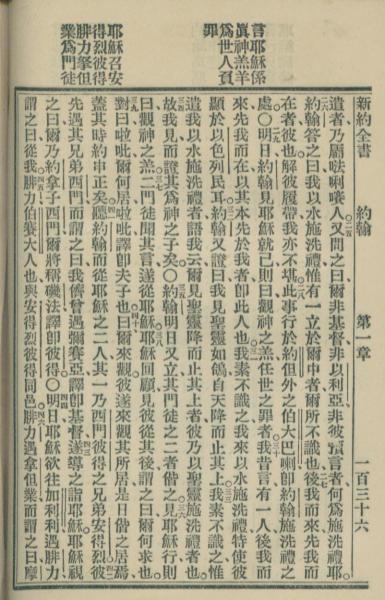 言耶穌係
眞神羔羊
爲世人負
罪
耶穌召安
得烈彼得
腓力拿但
業爲門徒
新約全書 約翰 第一章 一百三十六
遣者乃唎人又問之曰爾非基督非以利亞非彼預言者何爲施洗禮耶
約翰答之曰我以水施洗禮惟有一立於爾中者爾所不識也後我而來先我而
在者彼也解彼履帶我亦不堪此事行於約但外之伯大巴喇卽約翰施洗禮之
處○明日約翰見耶穌就己則曰觀神之羔任世之罪者我昔言有一人後我而
來先我而在以其本先於我者卽此人也我素不識之我來以水施洗禮特使彼
顯於以色列民耳約翰又證曰我見聖靈如鴿自天降而止其上我素不識之惟
遣我以水施洗禮者語我云爾見聖靈降而止其上者彼乃以聖靈施洗禮者
故我見而證其爲神之子矣○約翰明日又立其門徒之二者偕之見耶穌行則
曰觀神之羔二門徒聞其言遂從耶穌耶穌回顧見彼從其後謂之曰爾何求也
對曰啦吡爾何居啦吡譯卽夫子也曰爾來觀彼遂來觀其所居是日偕之居焉
蓋其時約申正矣聽約翰而從耶穌之二人其一乃西門彼得之兄弟安得烈彼
先遇其兄弟西門而謂之曰我儕曾遇彌賽亞譯卽基督遂導之詣耶穌耶穌視
之曰爾乃約拿子西門爾將稱磯法譯卽彼得○明日耶穌欲往加利利遇腓力
謂之曰從我腓力伯賽大人也與安得烈彼得同邑腓力遇拿但業而謂之曰摩